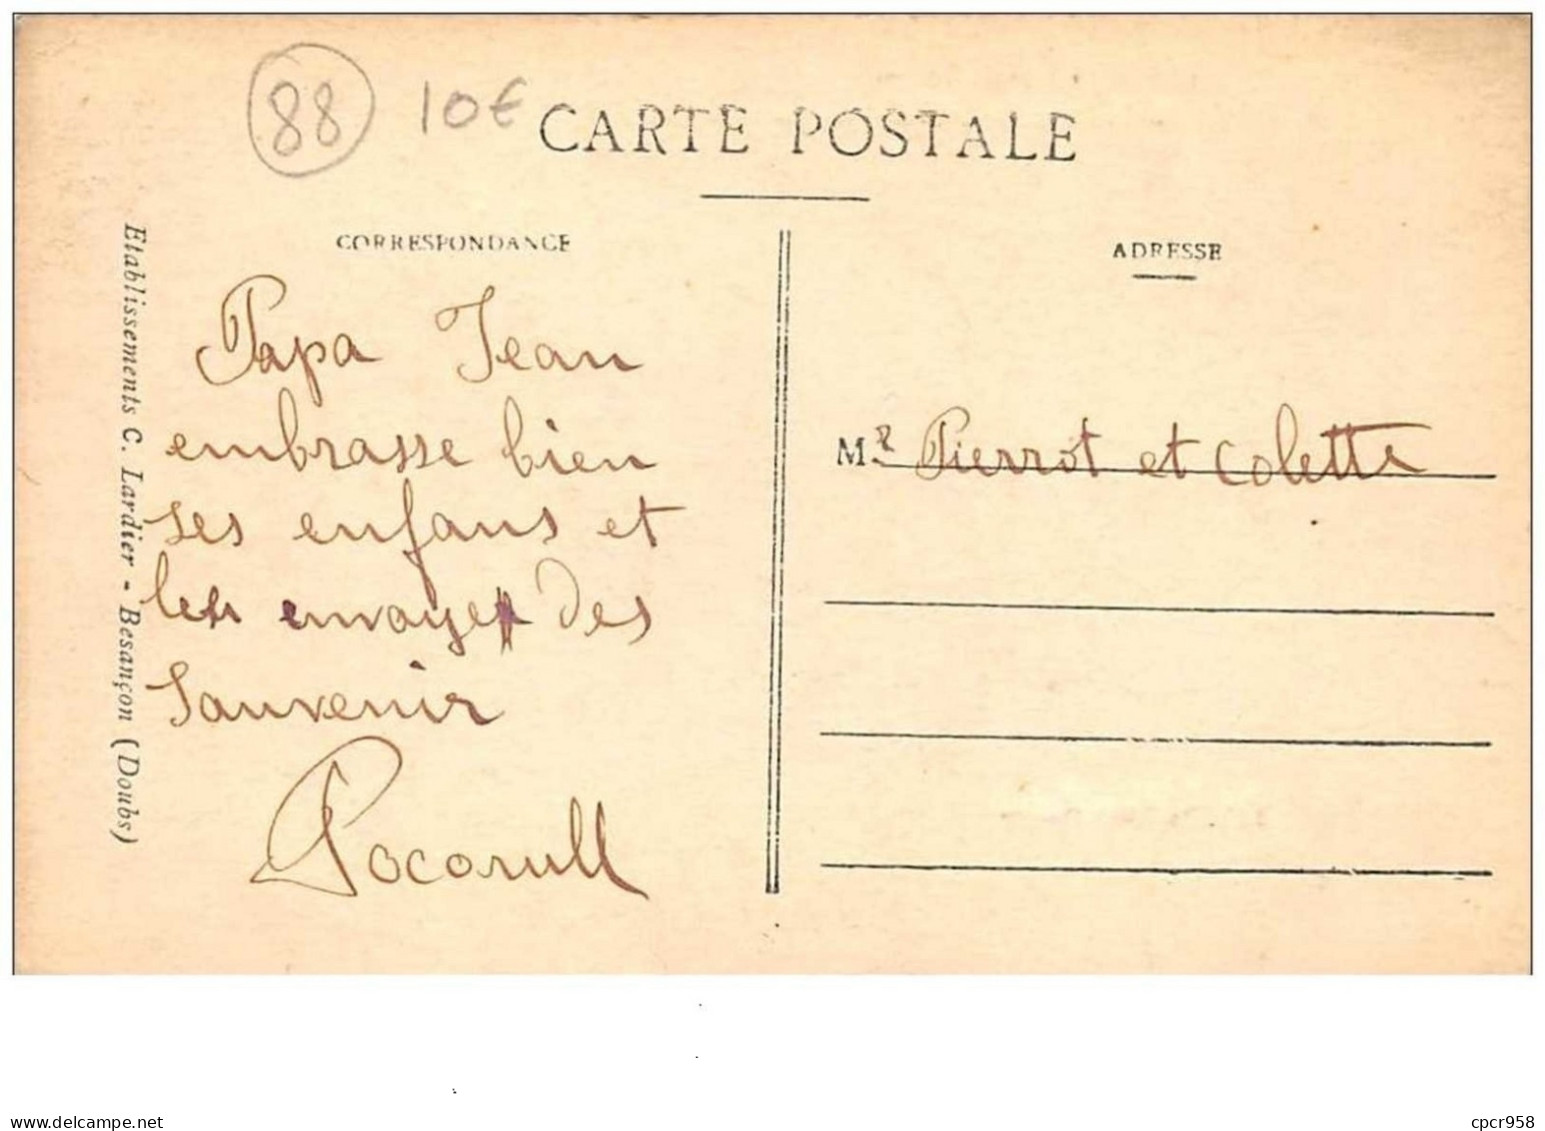 88 10€
CARTE POSTALE
CORRESPONDANCE
ADRESSE
Papa Jean
embrasse bien
ses enfans et
les envoye des
Souvenir
Pocorull
Mr Pierrot et Colette
Etablissements C. Lardier - Besançon (Doubs)
www.delcampe.net
cpcr958